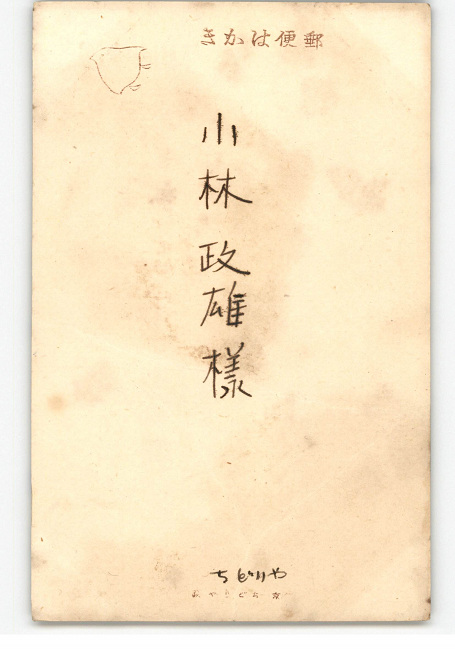 郵便はかき
小林政雄様
ちどりや